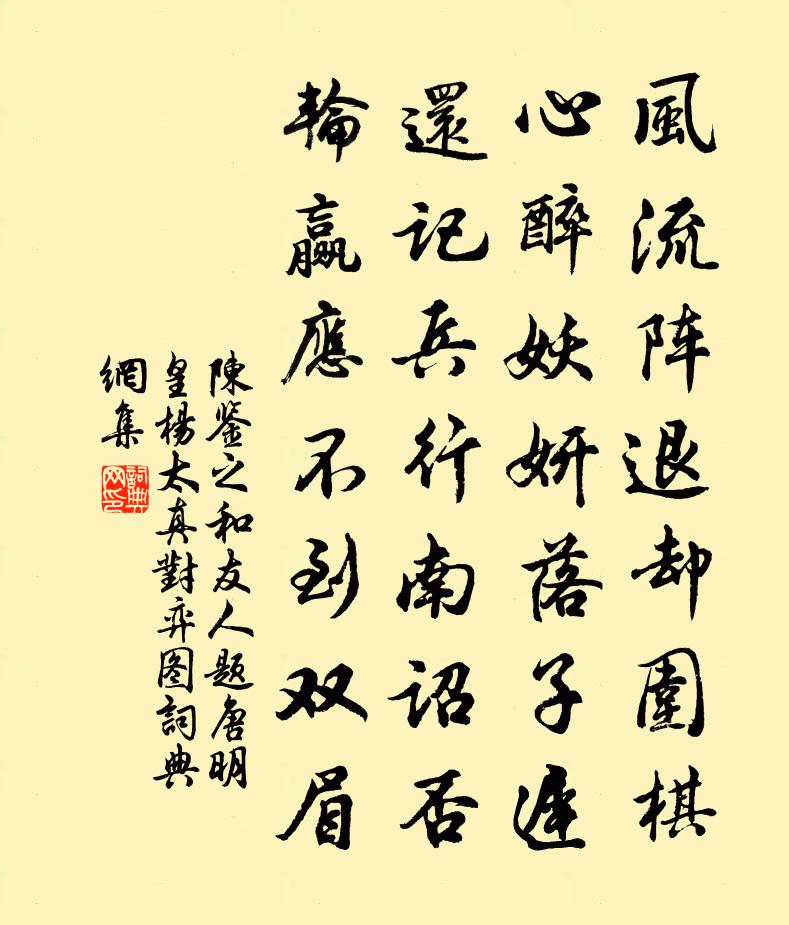 風流阵退却圍棋
心醉妖妍落子遲
還記兵行南詔否
輪贏應不到双眉
陳鉴之和友人题唐明
皇楊太真對弈图詞典
網集
詞典
网印